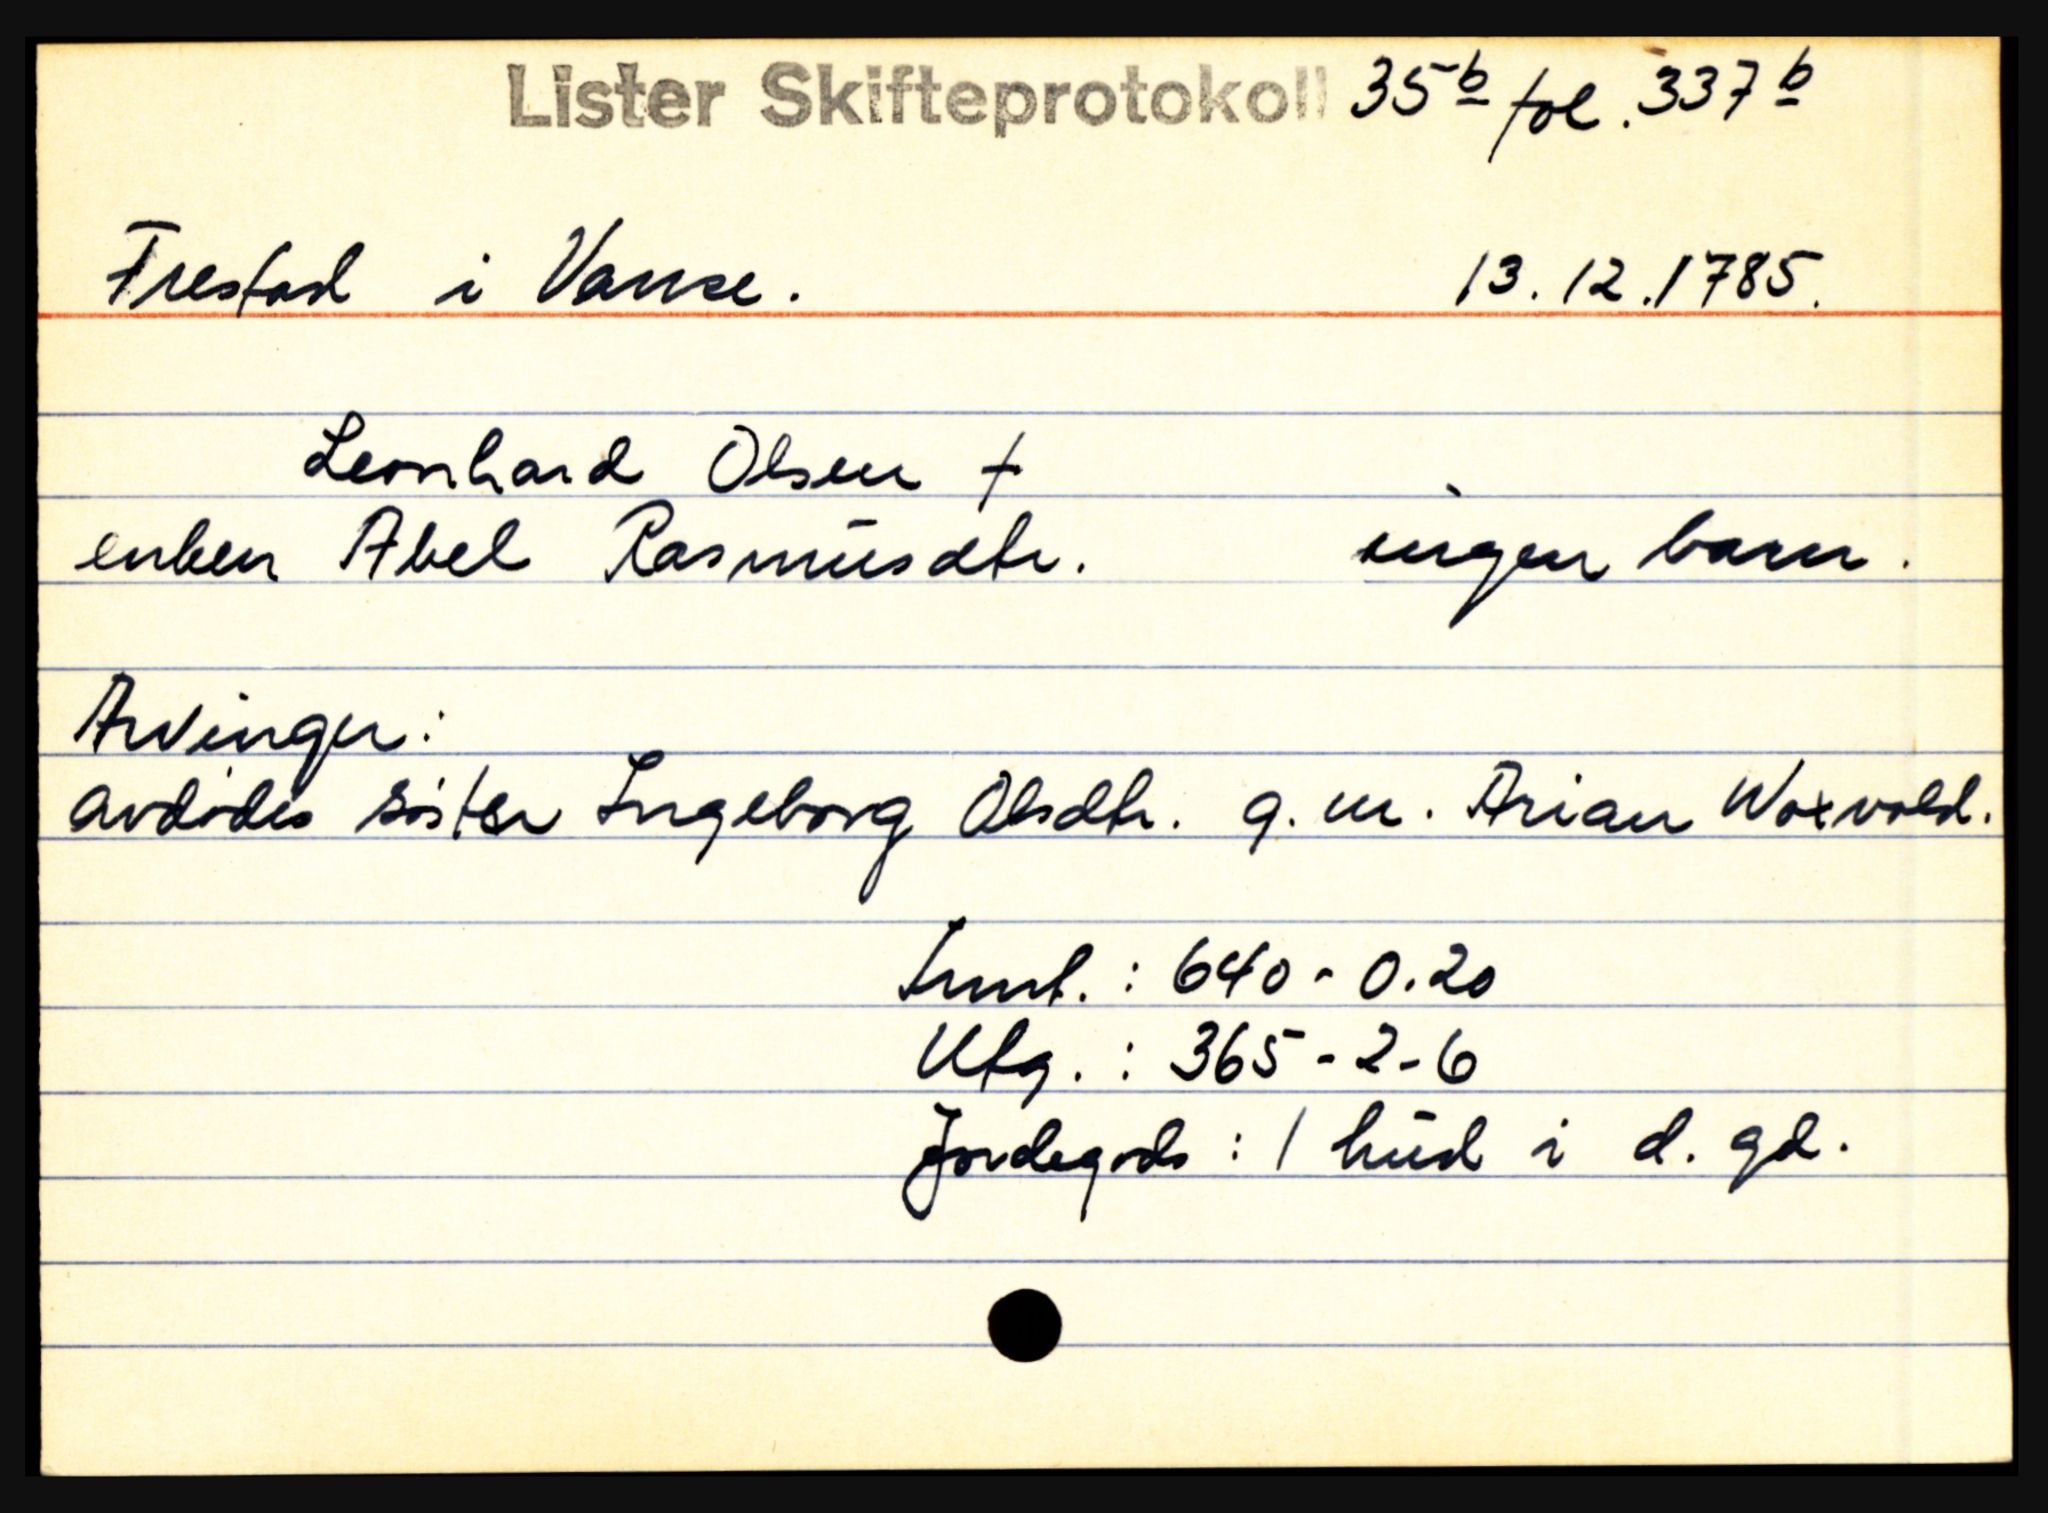 Lister Skifteprotokoll 35b fol. 337b
Frestad i Vanse. 13.12.1785.
Leonhard Olsen †
enken Abel Rasmusdtr. ingen barn.
Arvinger:
avdödes söster Ingeborg Olsdtr. g.m. Arian Woxvold.
Innt.: 640-0.20
Utg.: 365-2-6
Jordegods: 1 hud i d. gd.